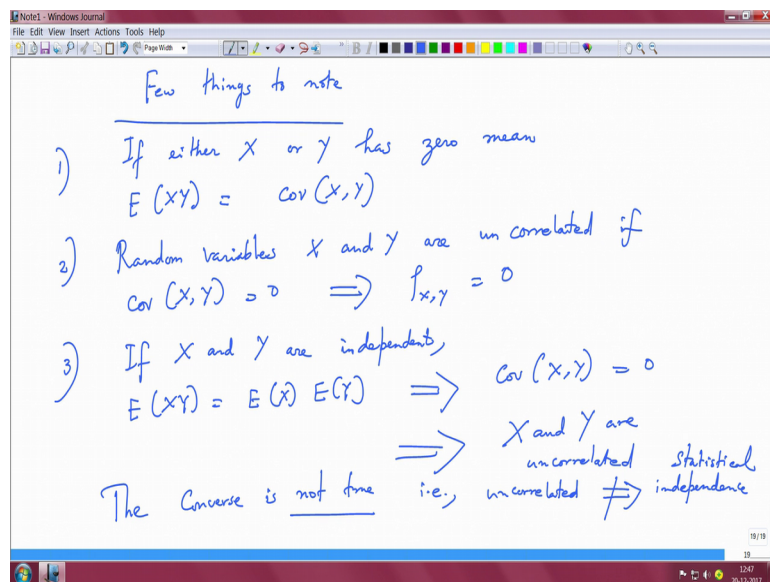 Note1 - Windows Journal
File Edit View Insert Actions Tools Help
Page Width
Few things to note
1) If either X or Y has zero mean
E(XY) = cov(X,Y)
2) Random variables X and Y are un correlated if
cov(X,Y) = 0 ⟹ ρx,y = 0
3) If X and Y are independent,
E(XY) = E(X) E(Y) ⟹ cov(X,Y) = 0
⟹ X and Y are
uncorrelated
The Converse is not true i.e., uncorrelated ⇏ Statistical
independence
19/19
19
12:47
20-12-2017